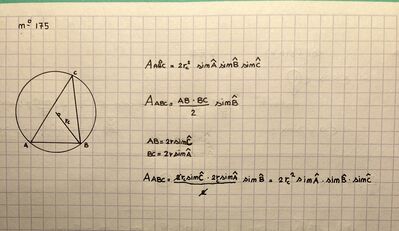 m° 175
A ABC = 2r_c² sinÂ sinB̂ sinĈ
C
r_c
A
B
A ABC = AB · BC / 2 sinB̂
AB = 2r sinĈ
BC = 2r sinÂ
A ABC = 2r sinĈ · 2r sinÂ / 2 sinB̂ = 2r_c² sinÂ · sinB̂ · sinĈ